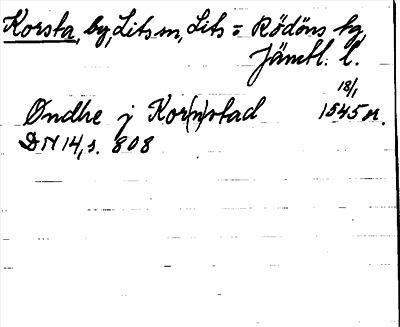 Korsta, by, Lits sn, Lits = Rödöns tg
Jämtl. l.
18/1
Øndhe j Kor(n)stad 1545 or.
DN 14, s. 808